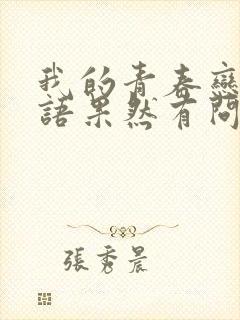 我的青春戀
語果然有問
張秀晨